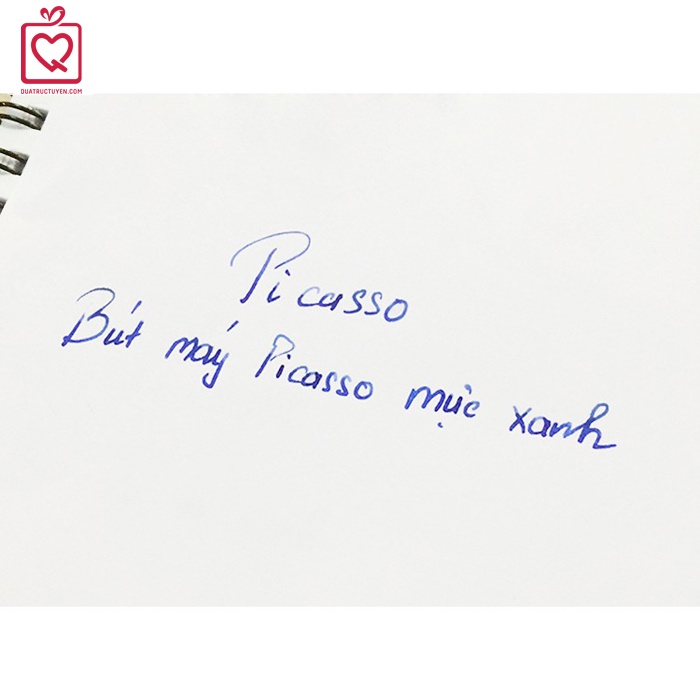 DUATRUCTUYEN.COM
Picasso
Bút máy Picasso mực xanh